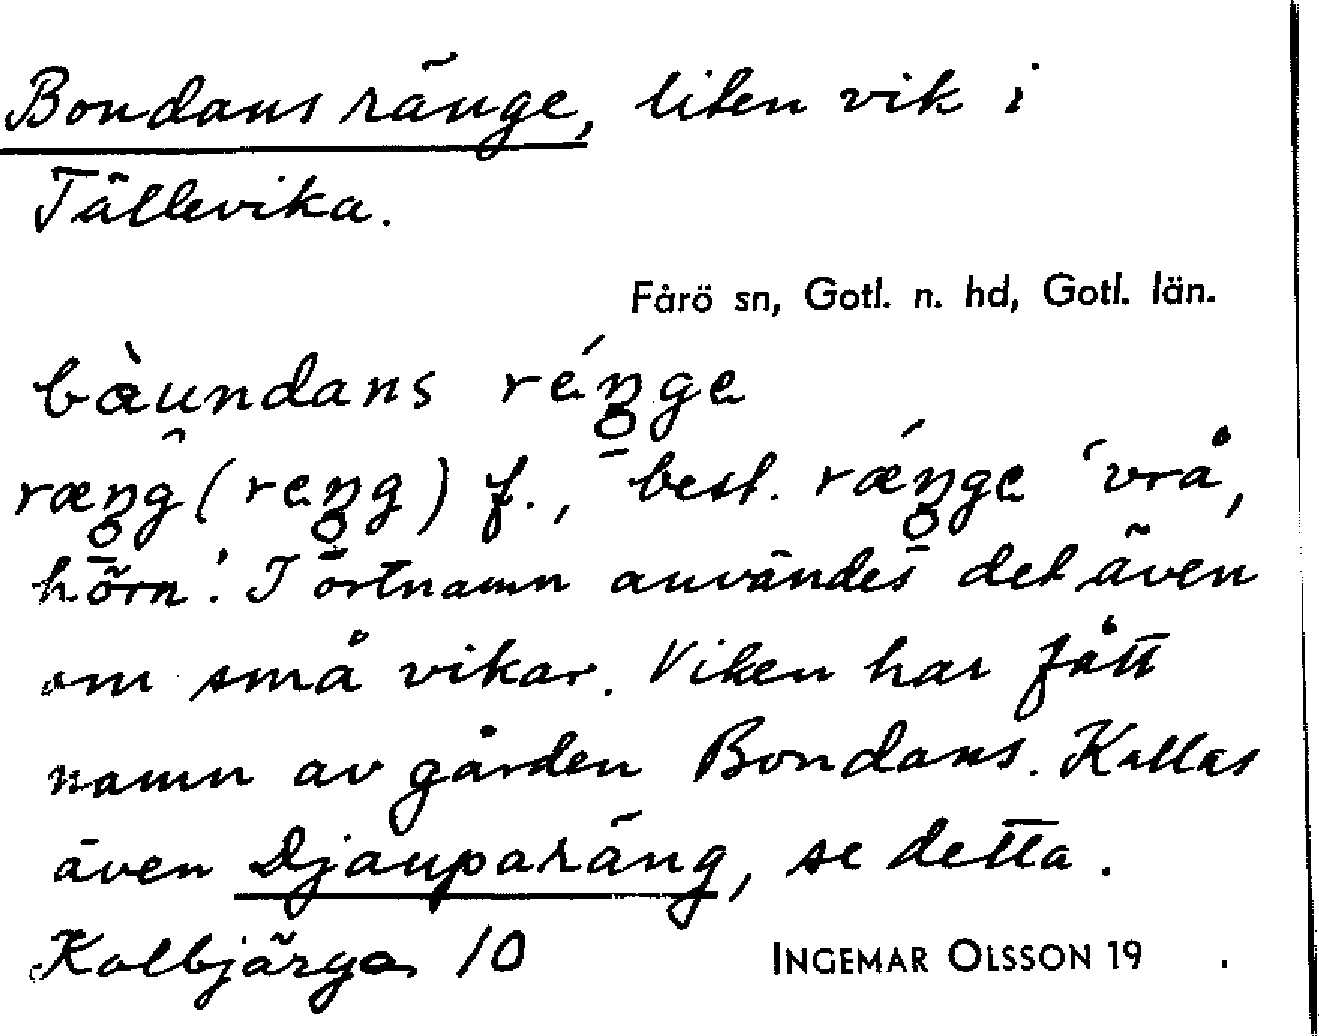 Bondans ränge, liten vik i
Tällevika.
Fårö sn, Gotl. n. hd, Gotl. län.
bàundans réŋge
ræŋg (reŋg) f., best. ræ´ŋge ‘vrå,
hörn’. I ortnamn användes det även
om små vikar. Viken har fått
namn av gården Bondans. Kallas
även Djauparäng, se detta.
Kalbjärga 10
INGEMAR OLSSON 19 .